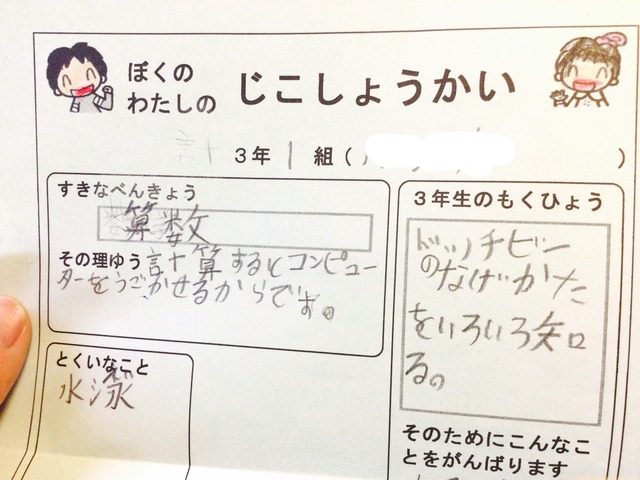 ぼくの
わたしの じこしょうかい
計
3年 1 組( )
すきなべんきょう
算数
その理ゆう 計算するとコンピュー
ターをうごかせるからです。
とくいなこと
水泳
3年生のもくひょう
ドッチビー
のなげかた
をいろいろ知
る。
そのためにこんなこ
とをがんばります